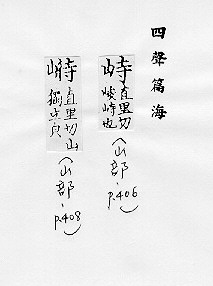 四聲篇海
峙
直里切
峻峙也
(山部,p.406)
直里切山
(山部,p.408)